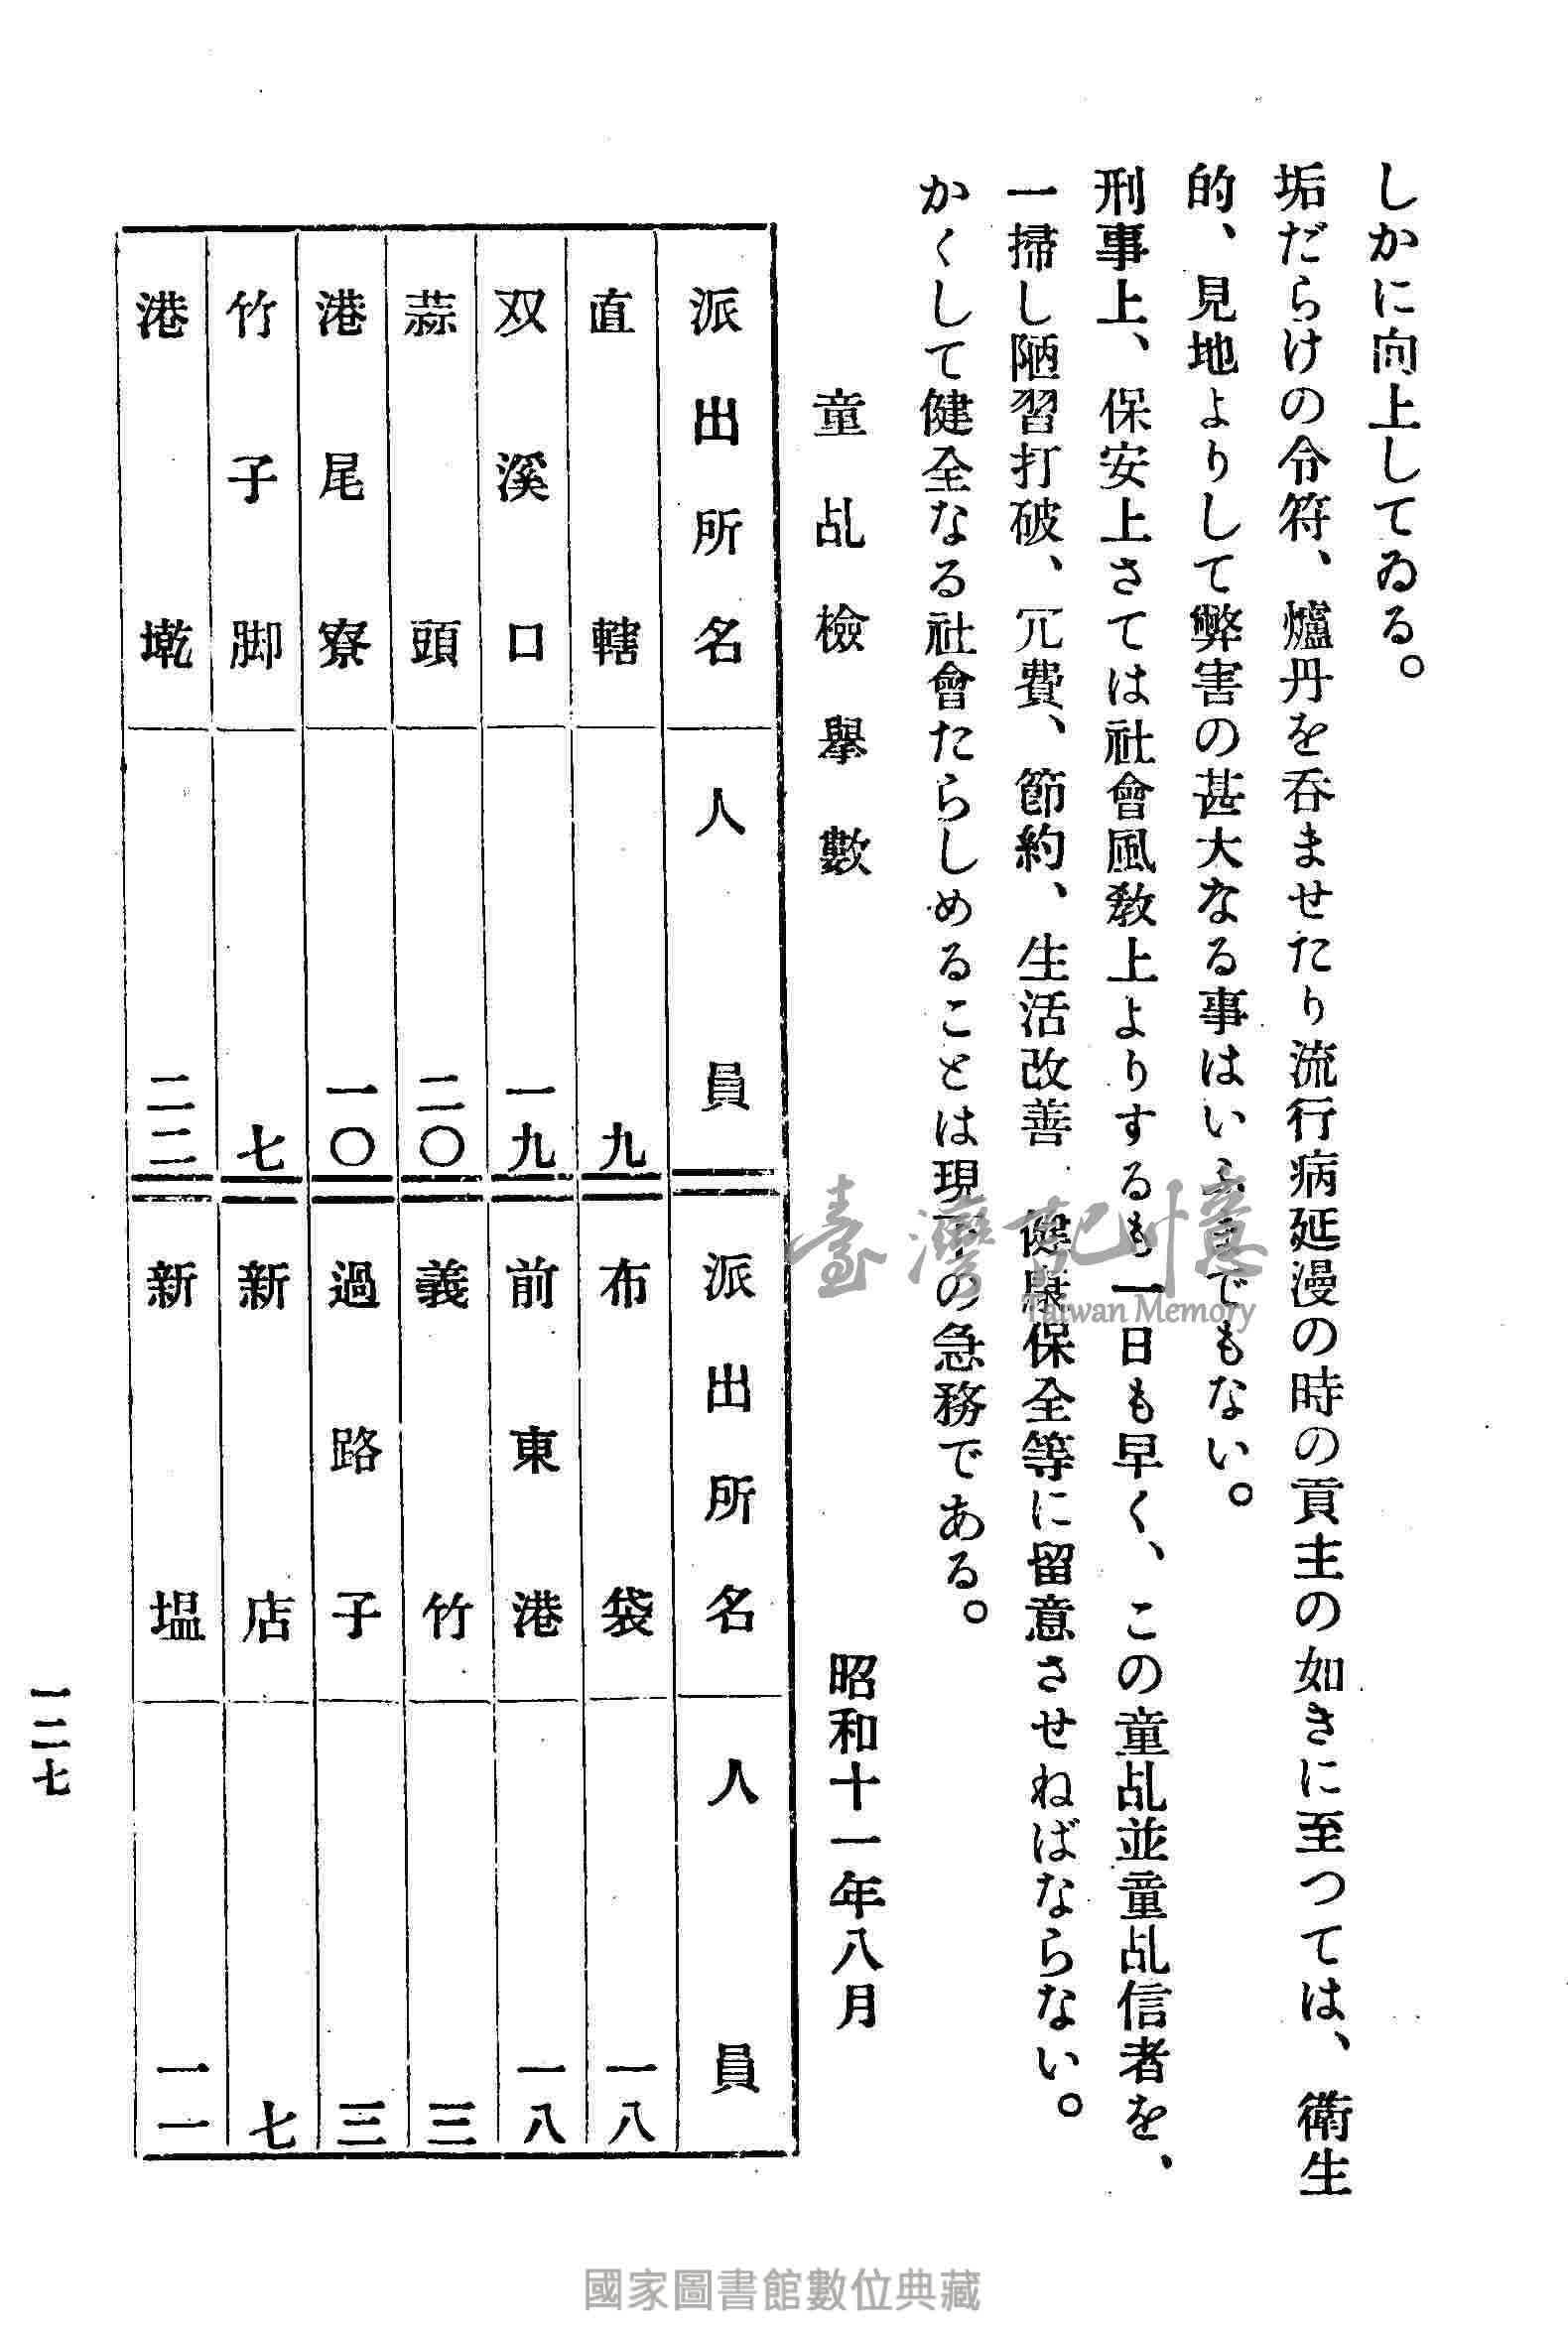 しかに向上してゐる。
垢だらけの令符、爐丹を呑ませたり流行病延漫の時の貢主の如きに至つては、衛生
的、見地よりして弊害の甚大なる事はいふまでもない。
刑事上、保安上さては社會風教上よりするも一日も早く、この童乩並童乩信者を、
一掃し陋習打破、冗費、節約、生活改善 健康保全等に留意させねばならない。
かくして健全なる社會たらしめることは現下の急務である。
童乩檢擧數 昭和十一年八月
派出所名 人員 派出所名 人員
直轄 九 布袋 一八
双溪口 一九 前東港 一八
蒜頭 二〇 義竹 三
港尾寮 一〇 過路子 三
竹子脚 七 新店 七
港墘 二二 新塭 一一
一二七
臺灣記憶
Taiwan Memory
國家圖書館數位典藏